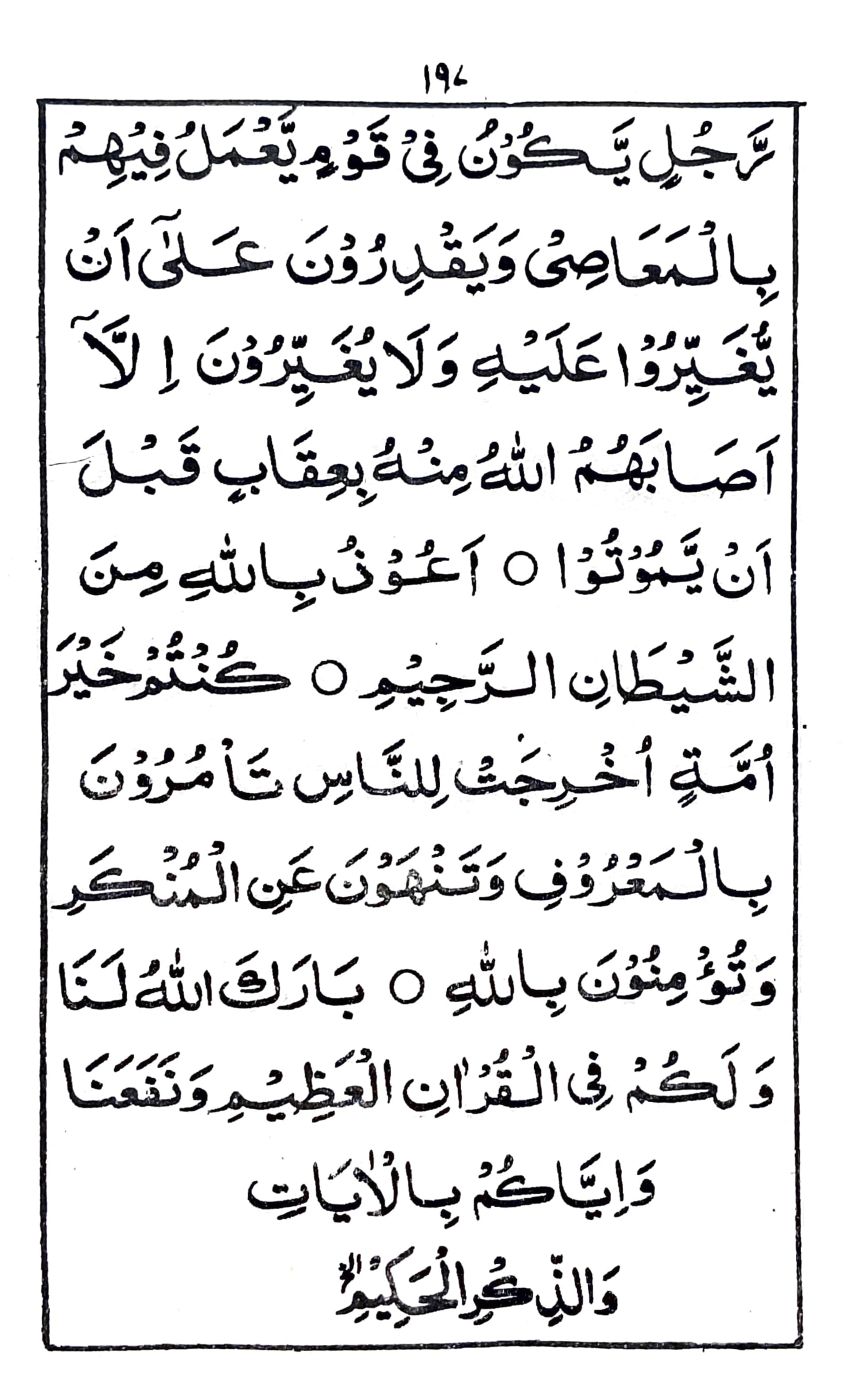 ۱۹۷
رَّجُلٍ يَّكُوْنُ فِىْ قَوْمٍ يَّعْمَلُ فِيْهِمْ
بِالْمَعَاصِىْ وَيَقْدِرُوْنَ عَلٰٓى اَنْ
يُّغَيِّرُوْا عَلَيْهِ وَلَا يُغَيِّرُوْنَ اِلَّآ
اَصَابَهُمُ اللّٰهُ مِنْهُ بِعِقَابٍ قَبْلَ
اَنْ يَّمُوْتُوْا ○ اَعُوْذُ بِاللّٰهِ مِنَ
الشَّيْطَانِ الرَّجِيْمِ ○ كُنْتُمْ خَيْرَ
اُمَّةٍ اُخْرِجَتْ لِلنَّاسِ تَاْمُرُوْنَ
بِالْمَعْرُوْفِ وَتَنْهَوْنَ عَنِ الْمُنْكَرِ
وَتُؤْمِنُوْنَ بِاللّٰهِ ○ بَارَكَ اللّٰهُ لَنَا
وَلَكُمْ فِى الْقُرْاٰنِ الْعَظِيْمِ وَنَفَعَنَا
وَاِيَّاكُمْ بِالْاٰيَاتِ
وَالذِّكْرِ الْحَكِيْمِ الخ